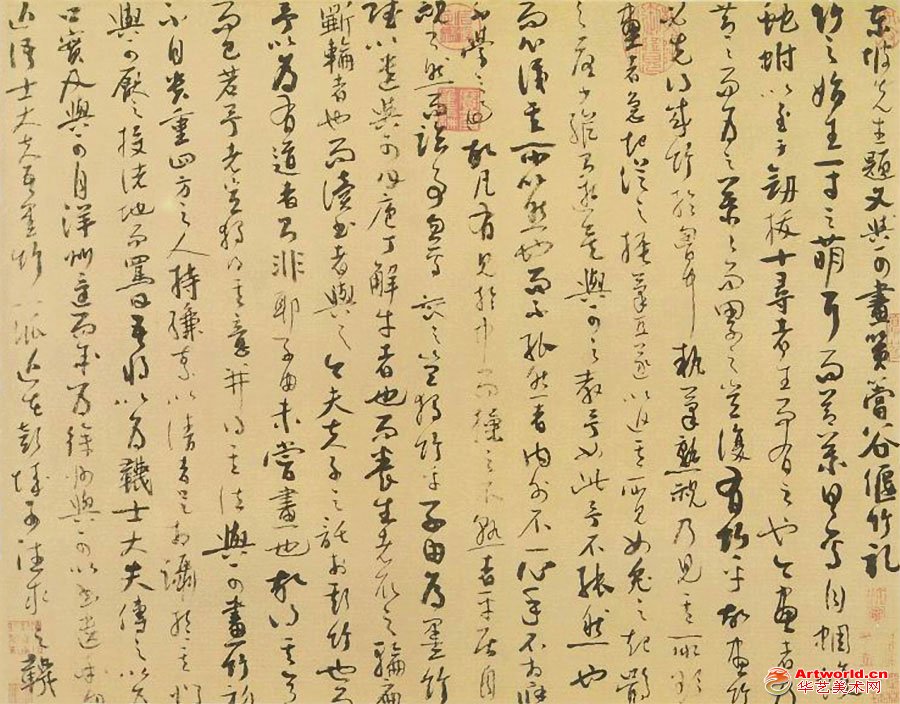 东坡先生題文與可畫篔簹谷偃竹記
竹之始生一寸之萌耳而節葉具焉自蜩腹
蛇蚹以至于劒拔十尋者生而有之也今畫者乃
節節而為之葉葉而累之豈復有竹乎故畫竹
必先得成竹於胷中執筆熟視乃見其所欲
畫者急起從之振筆直遂以追其所見如兔之起鶻
之落少縱則逝矣與可之教予如此予不能然也
而心識其所以然也而不能然者內外不一心手不相應
不學之過也故凡有見於中而操之不熟者平居自
視了然而臨事忽焉喪之豈獨竹乎子由為墨竹
賦以遺與可曰庖丁解牛者也而養生者取之輪扁
斲輪者也而讀書者與之今夫夫子之託於斯竹也而
予以為有道者則非耶子由未嘗畫也故得其意
而已若予者豈獨得其意并得其法與可畫竹初
不自貴重四方之人持縑素以請者足相躡於其門
與可厭之投諸地而罵曰吾將以為韈士大夫傳之以為
口實及與可自洋州還而余為徐州與可以書遺余曰
近語士大夫吾墨竹一派近在彭城可往求之韈
Artworld.cn
华艺美术网